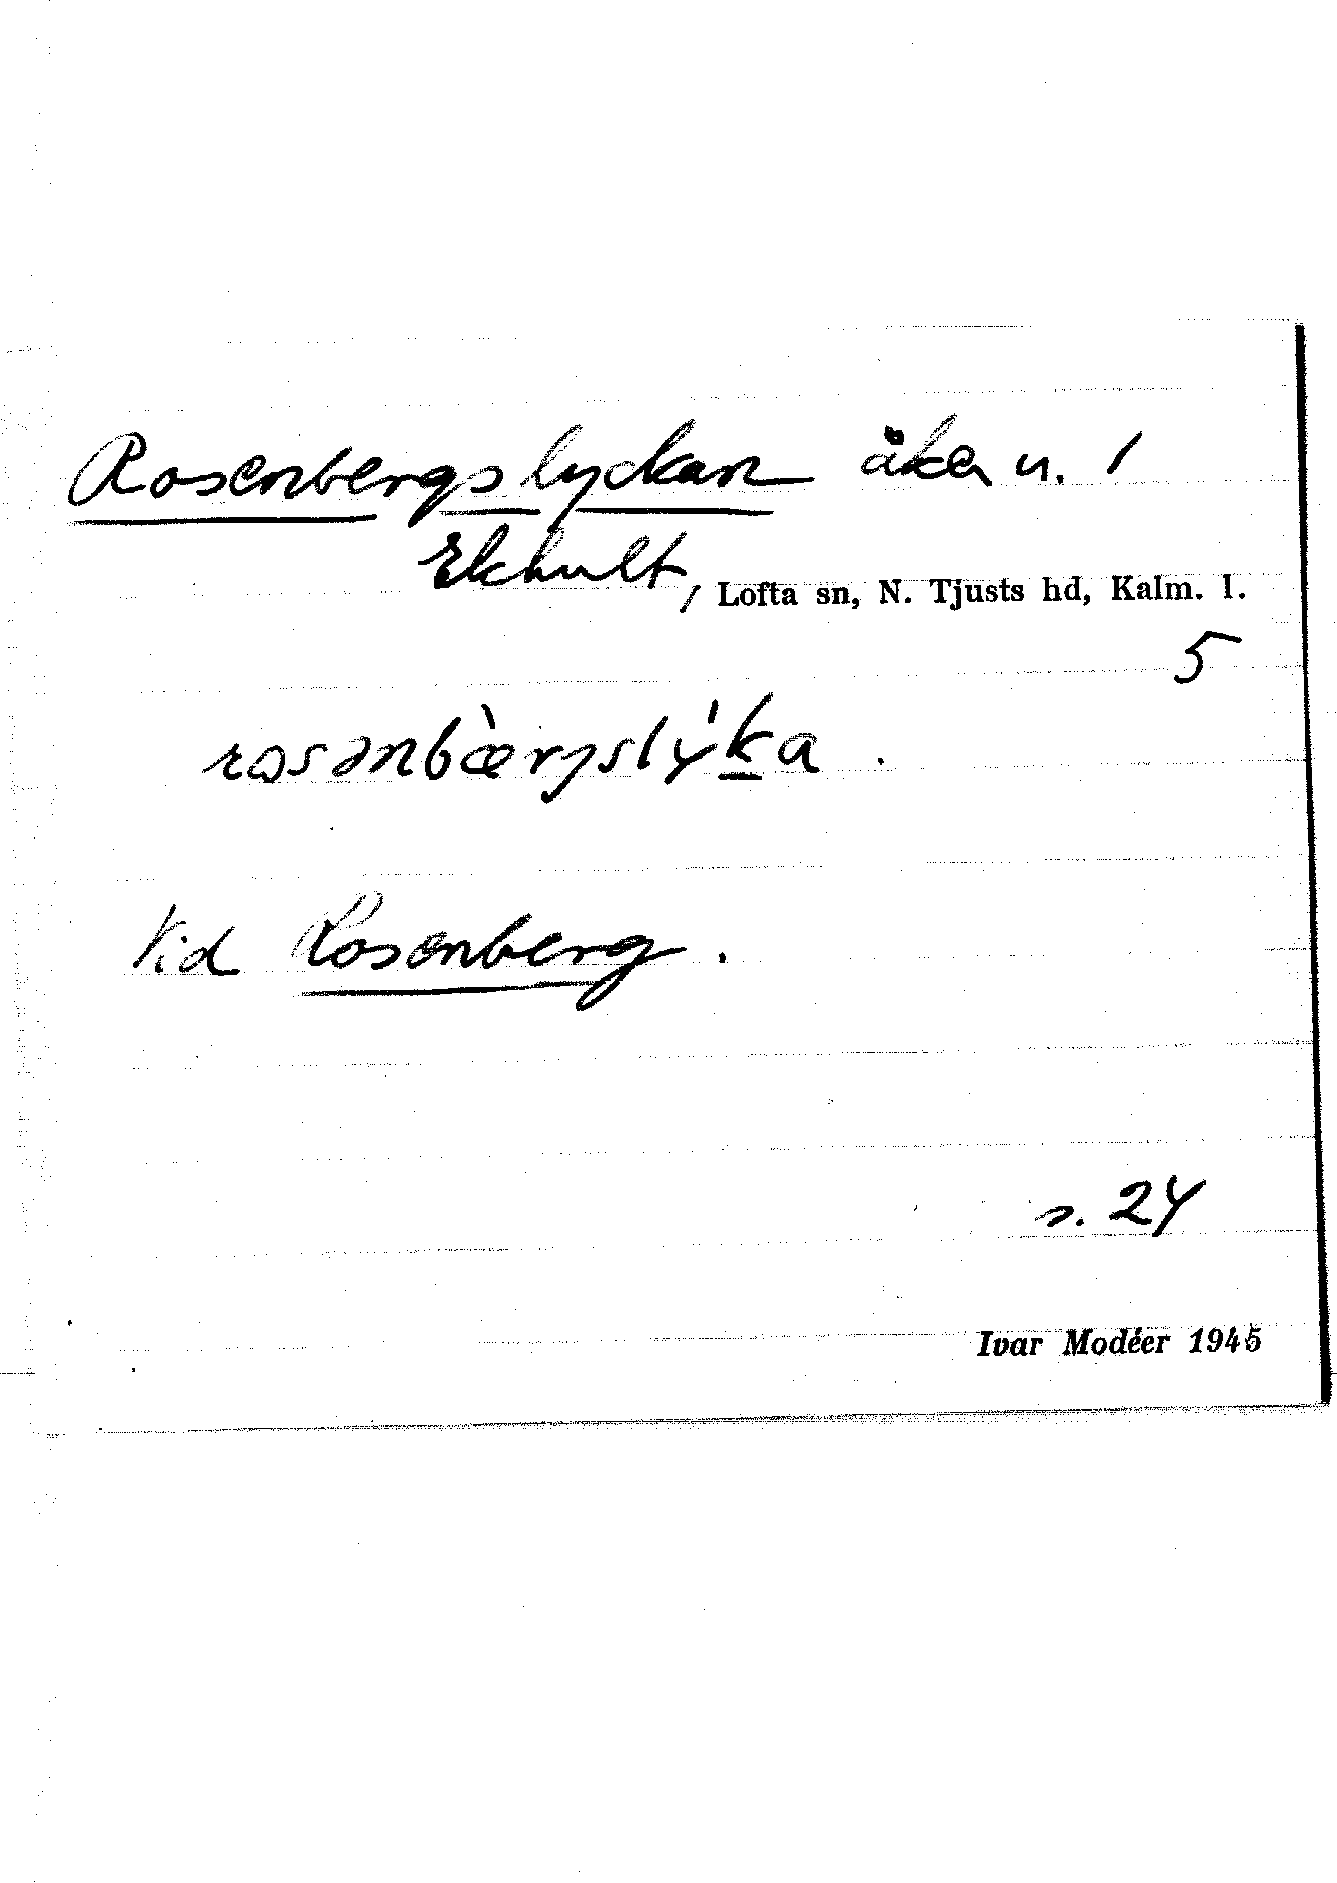 Rosenbergslyckan åker u. 1
Ekhult, Lofta sn, N. Tjusts hd, Kalm. l.
5
Vid Rosenberg.
s. 24
Ivar Modéer 1945